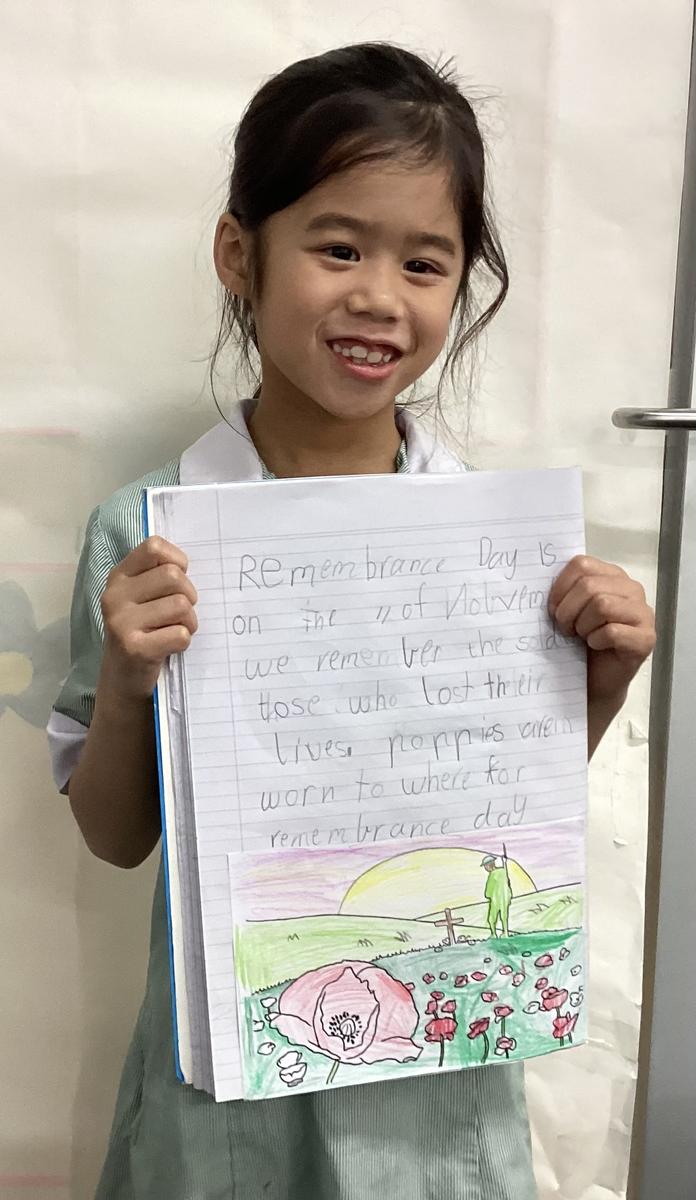 Remembrance Day is
on the 11 of Nobvem
we remember the sold
those who lost their
lives. poppies are
worn to where for
remembrance day